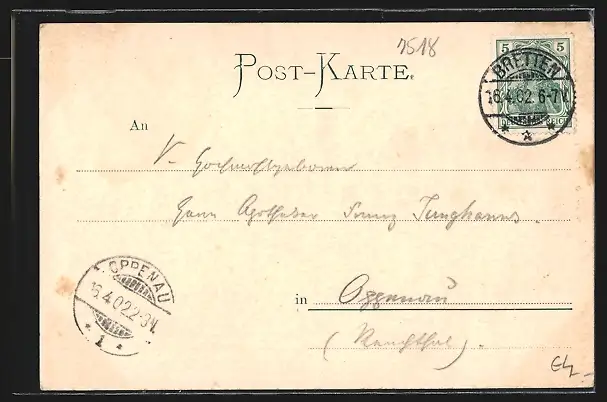 7518
5 5
POST-KARTE.
BRETTEN
16.4.02. 6-7N
An
Sr. Hochwohlgeboren
Herrn Apotheker Franz Junghanns.
OPPENAU
16.4.02. 2-3N.
1
in Oppenau
(Renchthal).